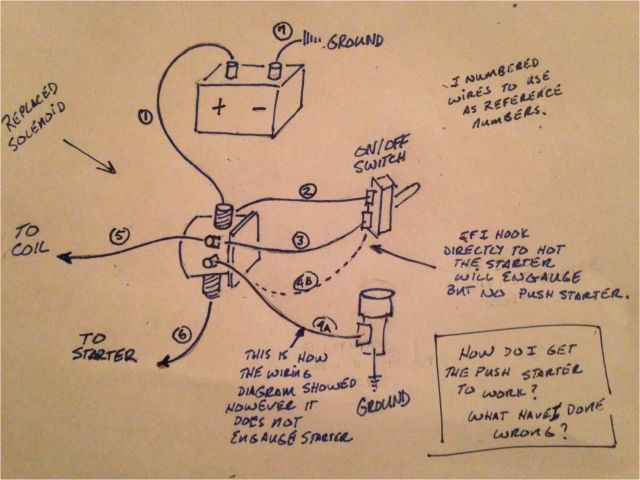 7
GROUND
I NUMBERED
WIRES TO USE
AS REFERENCE
NUMBERS.
REPLACED
SOLENOID
1
+ -
ON/OFF
SWITCH
2
TO
COIL
5
3
IF I HOOK
DIRECTLY TO HOT
THE STARTER
WILL ENGAUGE
BUT NO PUSH STARTER.
4B
6
4A
TO
STARTER
THIS IS HOW
THE WIRING
DIAGRAM SHOWED
HOWEVER IT
DOES NOT
ENGAUGE STARTER
GROUND
HOW DO I GET
THE PUSH STARTER
TO WORK?
WHAT HAVE I DONE
WRONG?